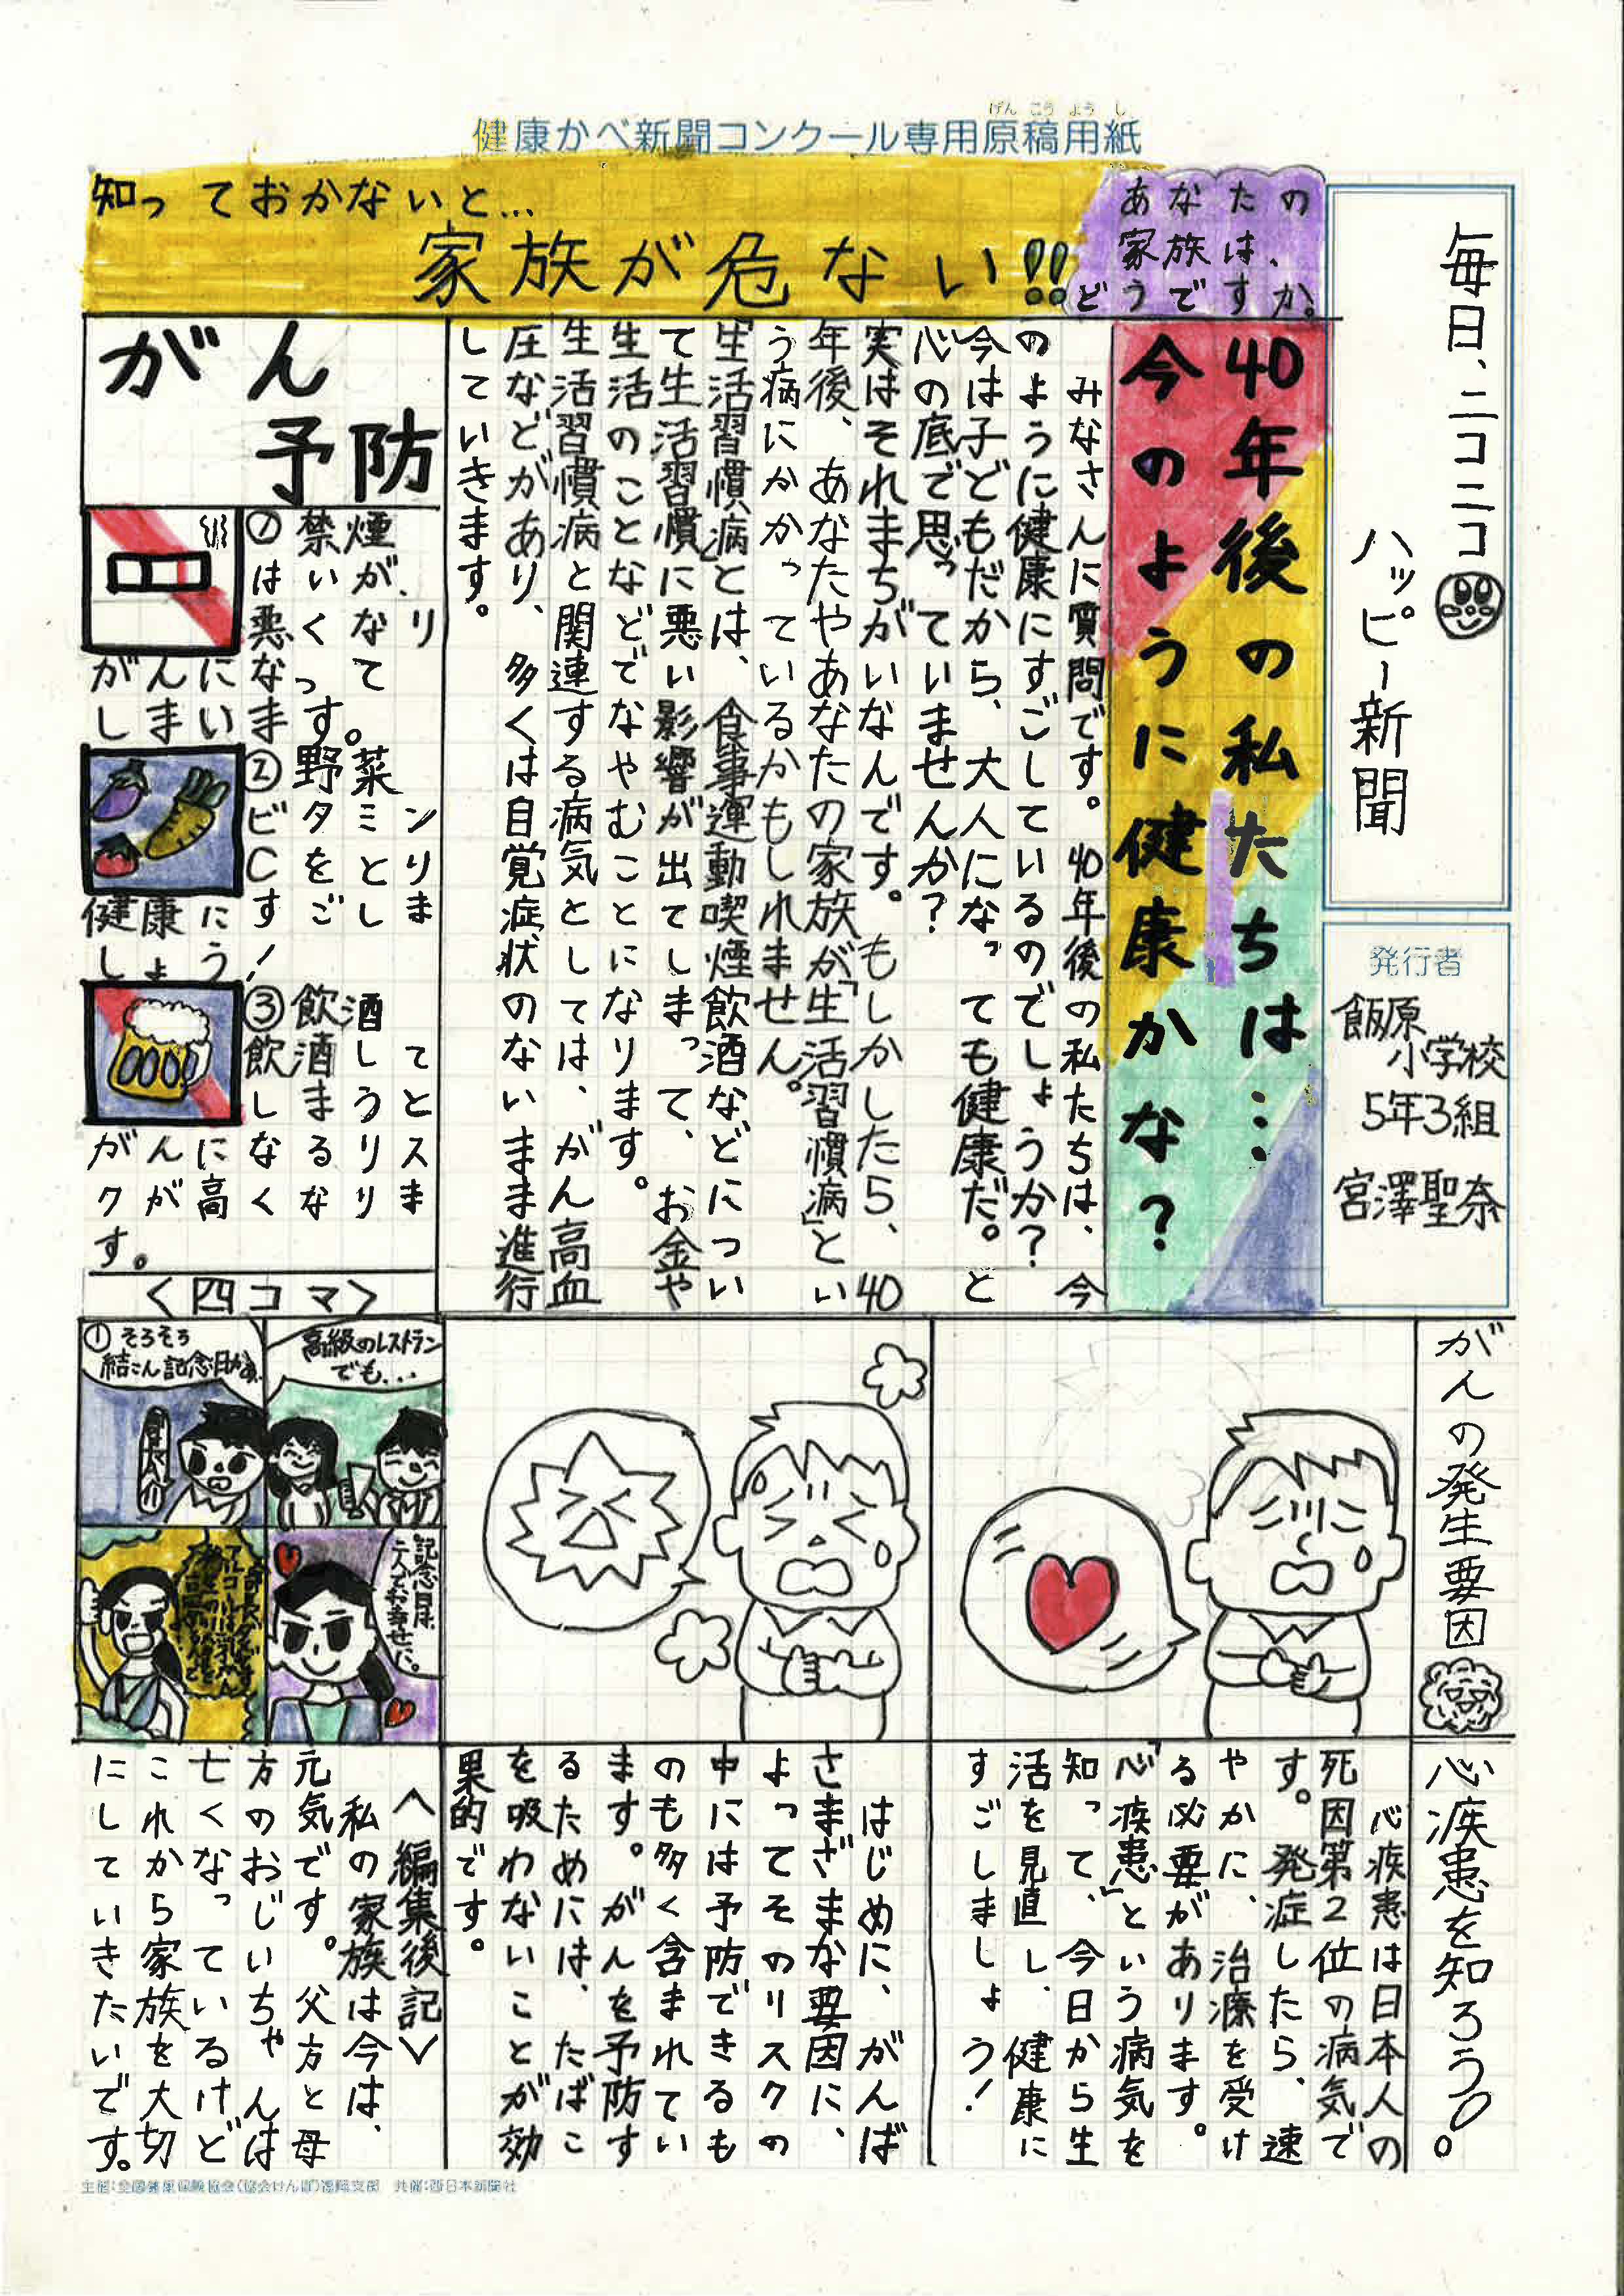 げんこうようし
健康かべ新聞コンクール専用原稿用紙
毎日、ニコニコ
ハッピー新聞
発行者
飯原
小学校
5年3組
宮澤聖奈
知っておかないと…
家族が危ない!!
あなたの
家族は、
どうですか。
40年後の私たちは…
今のように健康かな?
みなさんに質問です。40年後の私たちは、今
のように健康にすごしているのでしょうか?
今は子どもだから、大人になっても健康だ。と
心の底で思っていませんか?
実はそれまちがいなんです。もしかしたら、40
年後、あなたやあなたの家族が「生活習慣病」とい
う病にかかっているかもしれません。
「生活習慣病」とは、食事運動喫煙飲酒などについ
て生活習慣に悪い影響が出てしまって、お金や
生活のことなどでなやむことになります。
生活習慣病と関連する病気としては、がん高血
圧などがあり、多くは自覚症状のないまま進行
していきます。
がん
予防
①禁煙
はいが、
悪くなり
なって
がんに
しまいます。
②野菜
ビタミン
Cをとり
すごしま
健康に
しょう!
③飲酒
飲酒して
しまうと
なるリス
がんに
クが高くなります。
<四コマ>
①そろそろ
結こん記念日かぁ。
高級のレストラン
でも...
記念日は、
二人でお幸せに。
がんの発生要因
心疾患を知ろう。
心疾患は日本人の
死因第2位の病気で
す。発症したら、速
やかに、治療を受け
る必要があります。
「心疾患」という病気を
知って、今日から生
活を見直し、健康に
すごしましょう!
はじめに、がんは
さまざまな要因に、
よってそのリスクの
中には予防できるも
のも多く含まれてい
ます。がんを予防す
るためには、たばこ
を吸わないことが効
果的です。
<編集後記>
私の家族は今は、
元気です。父方と母
方のおじいちゃんは
亡くなっているけど
これから家族を大切
にしていきたいです。
主催:全国健康保険協会(協会けんぽ)福岡支部 共催:西日本新聞社